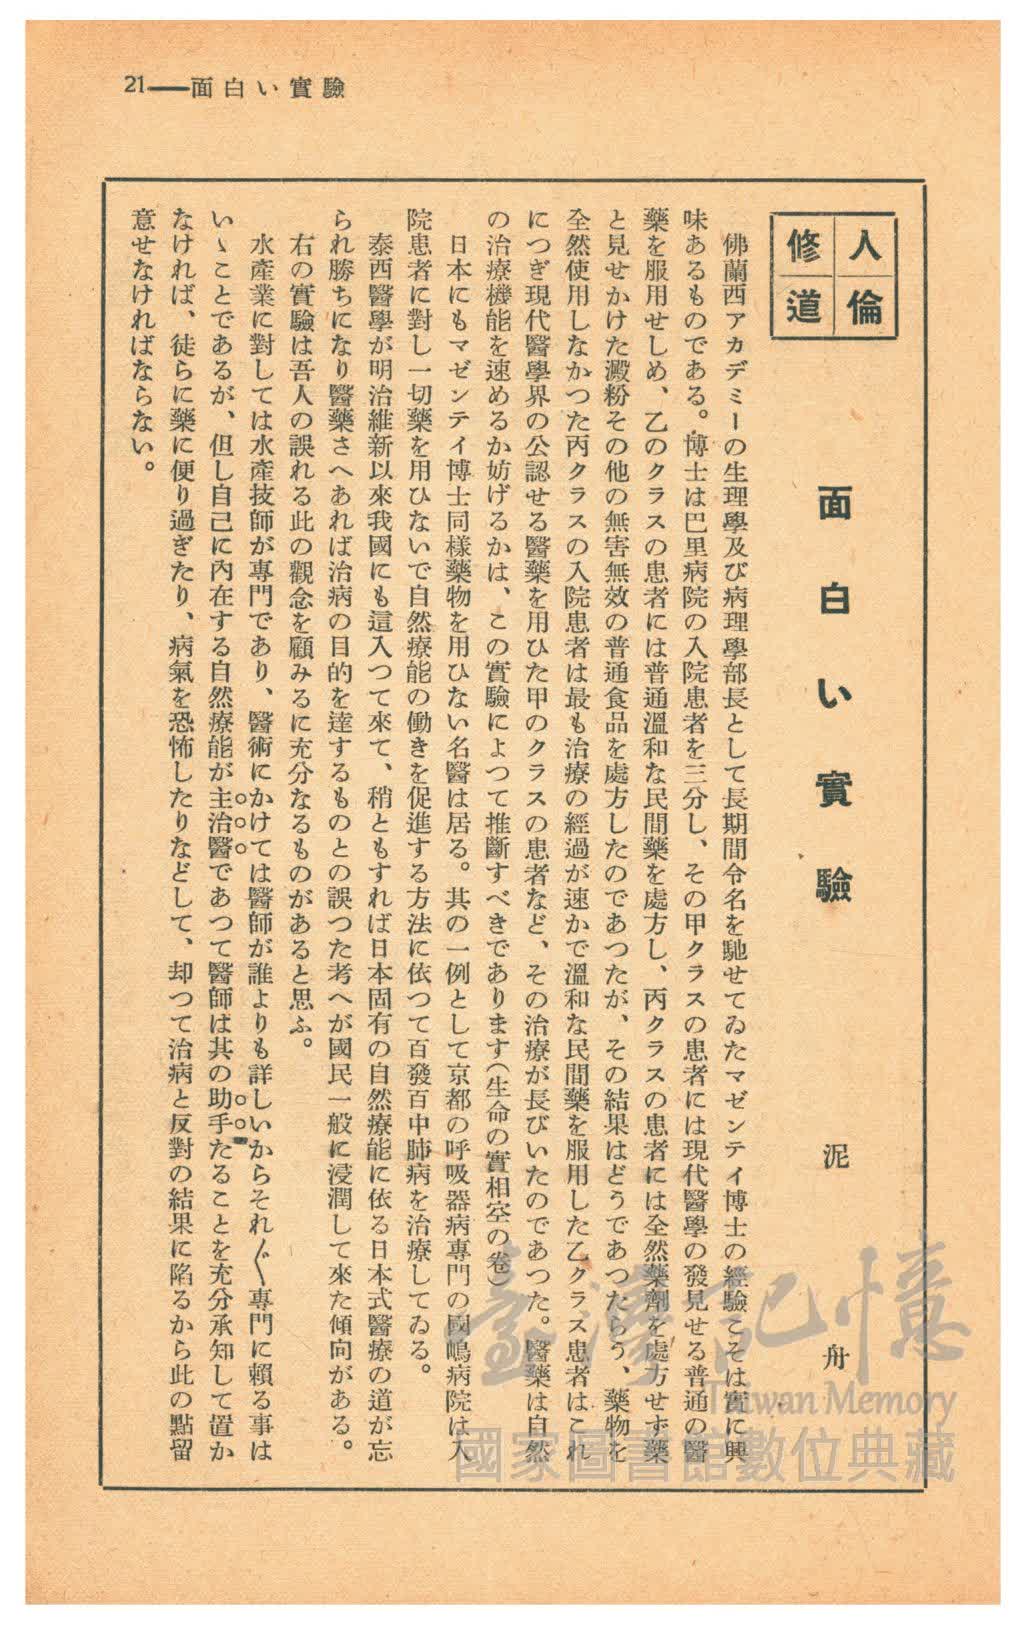 21──面白い實驗
人倫
修道
面白い實驗
泥舟
佛蘭西アカデミーの生理學及び病理學部長として長期間令名を馳せてゐたマゼンテイ博士の經驗こそは實に興
味あるものである。博士は巴里病院の入院患者を三分し、その甲クラスの患者には現代醫學の發見せる普通の醫
藥を服用せしめ、乙のクラスの患者には普通溫和な民間藥を處方し、丙クラスの患者には全然藥劑を處方せず藥
と見せかけた澱粉その他の無害無效の普通食品を處方したのであつたが、その結果はどうであつたらう、藥物を
全然使用しなかつた丙クラスの入院患者は最も治療の經過が速かで溫和な民間藥を服用した乙クラス患者はこれ
につぎ現代醫學界の公認せる醫藥を用ひた甲のクラスの患者など、その治療が長びいたのであつた。醫藥は自然
の治療機能を速めるか妨げるかは、この實驗によつて推斷すべきであります(生命の實相空の卷)
日本にもマゼンテイ博士同樣藥物を用ひない名醫は居る。其の一例として京都の呼吸器病專門の國嶋病院は入
院患者に對し一切藥を用ひないで自然療能の働きを促進する方法に依つて百發百中肺病を治療してゐる。
泰西醫學が明治維新以來我國にも這入つて來て、稍ともすれば日本固有の自然療能に依る日本式醫療の道が忘
られ勝ちになり醫藥さへあれば治病の目的を達するものとの誤つた考へが國民一般に浸潤して來た傾向がある。
右の實驗は吾人の誤れる此の觀念を顧みるに充分なるものがあると思ふ。
水產業に對しては水產技師が專門であり、醫術にかけては醫師が誰よりも詳しいからそれ〲專門に賴る事は
いゝことであるが、但し自己に內在する自然療能が主治醫であつて醫師は其の助手たることを充分承知して置か
なければ、徒らに藥に便り過ぎたり、病氣を恐怖したりなどして、却つて治病と反對の結果に陷るから此の點留
意せなければならない。
臺灣記憶
Taiwan Memory
國家圖書館數位典藏